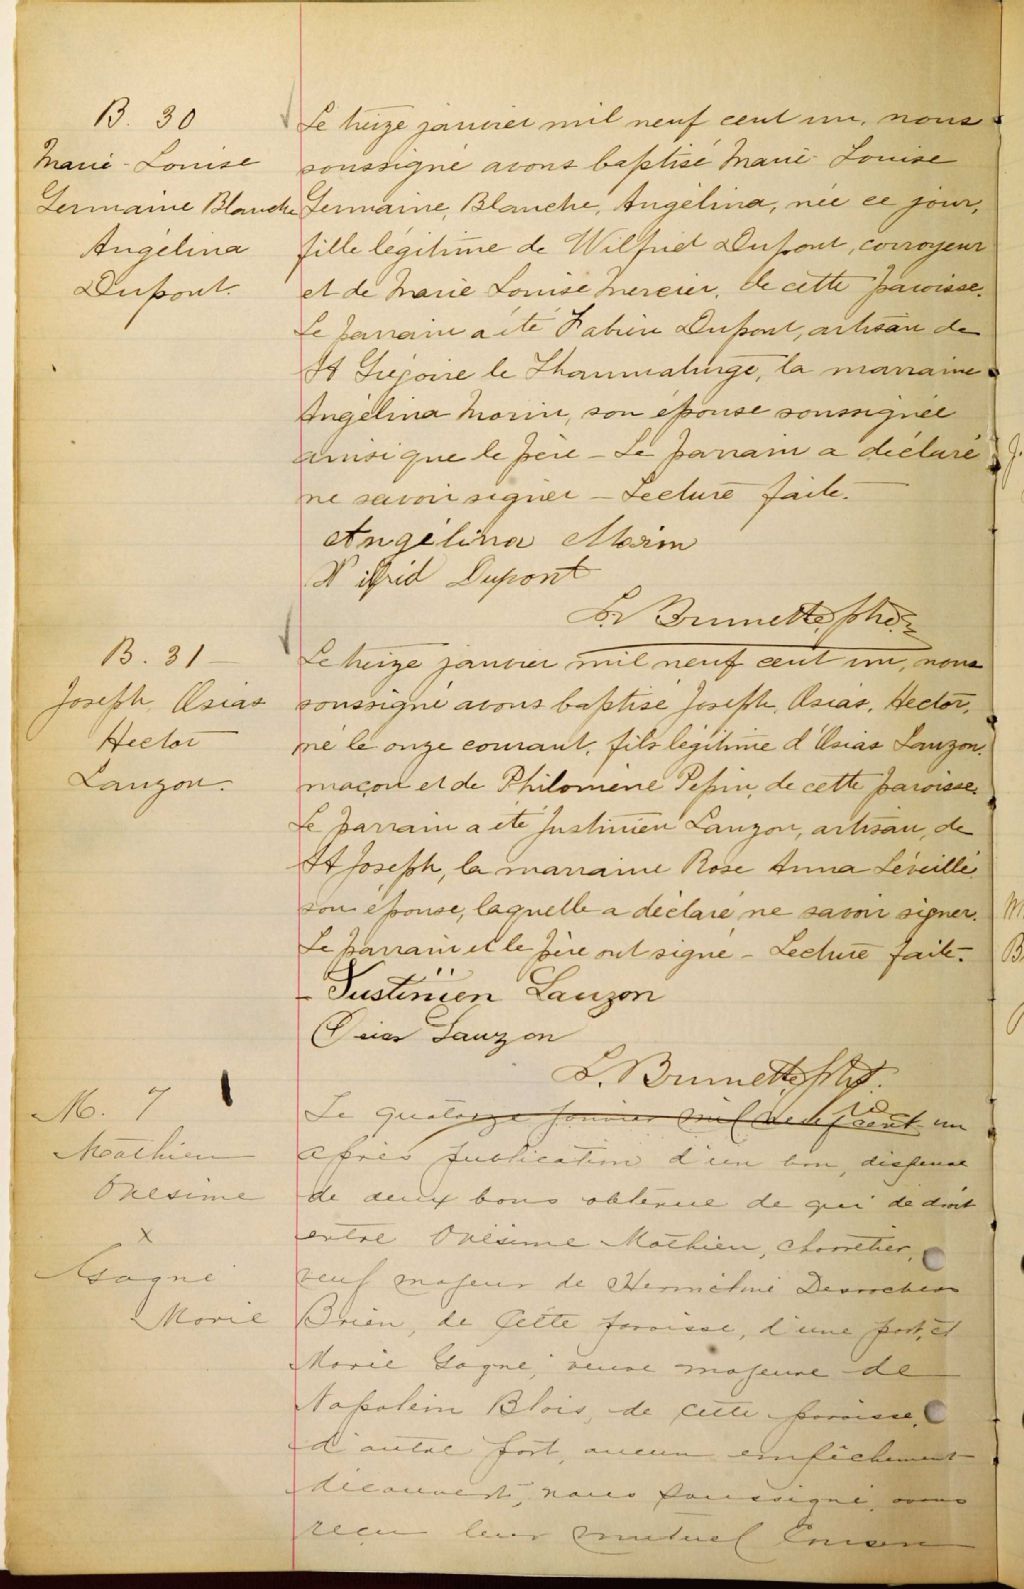 B. 30
Marie-Louise
Germaine Blanche
Angélina
Dupont.
Le treize janvier mil neuf cent un, nous
soussigné avons baptisé Marie-Louise
Germaine, Blanche, Angélina, née ce jour,
fille légitime de Wilfrid Dupont, corroyeur
et de Marie Louise Mercier, de cette paroisse.
Le parrain a été Fabien Dupont, artisan de
St Grégoire le Thaumaturge, la marraine
Angélina Morin, son épouse soussignée
ainsi que le père - Le parrain a déclaré
ne savoir signer - Lecture faite.
Angélina Morin
Wilfrid Dupont
L. Brunette, ptre.
B. 31 -
Joseph, Osias
Hector
Lauzon.
Le treize janvier mil neuf cent un, nous
soussigné avons baptisé Joseph, Osias, Hector,
né le onze courant, fils légitime d'Osias Lauzon,
maçon et de Philomène Pepin, de cette paroisse.
Le parrain a été Justinien Lauzon, artisan, de
St Joseph, la marraine Rose Anna Léveillé
son épouse, laquelle a déclaré ne savoir signer.
Le parrain et le père ont signé - Lecture faite.
- Justinien Lauzon
Osias Lauzon
L. Brunette, ptre.
M. 7
Mathieu
Onésime
x
Gagné
Marie
Le quatorze janvier mil neuf cent un
après publication d'un ban, dispense
de deux bans obtenue de qui de droit
entre Onésime Mathieu, charretier,
veuf majeur de Herméline Desrochers
Brien, de cette paroisse, d'une part, et
Marie Gagné, veuve majeure de
Napoléon Blois, de cette paroisse,
d'autre part, aucun empêchement
découvert, nous soussigné, avons
reçu leur mutuel consen